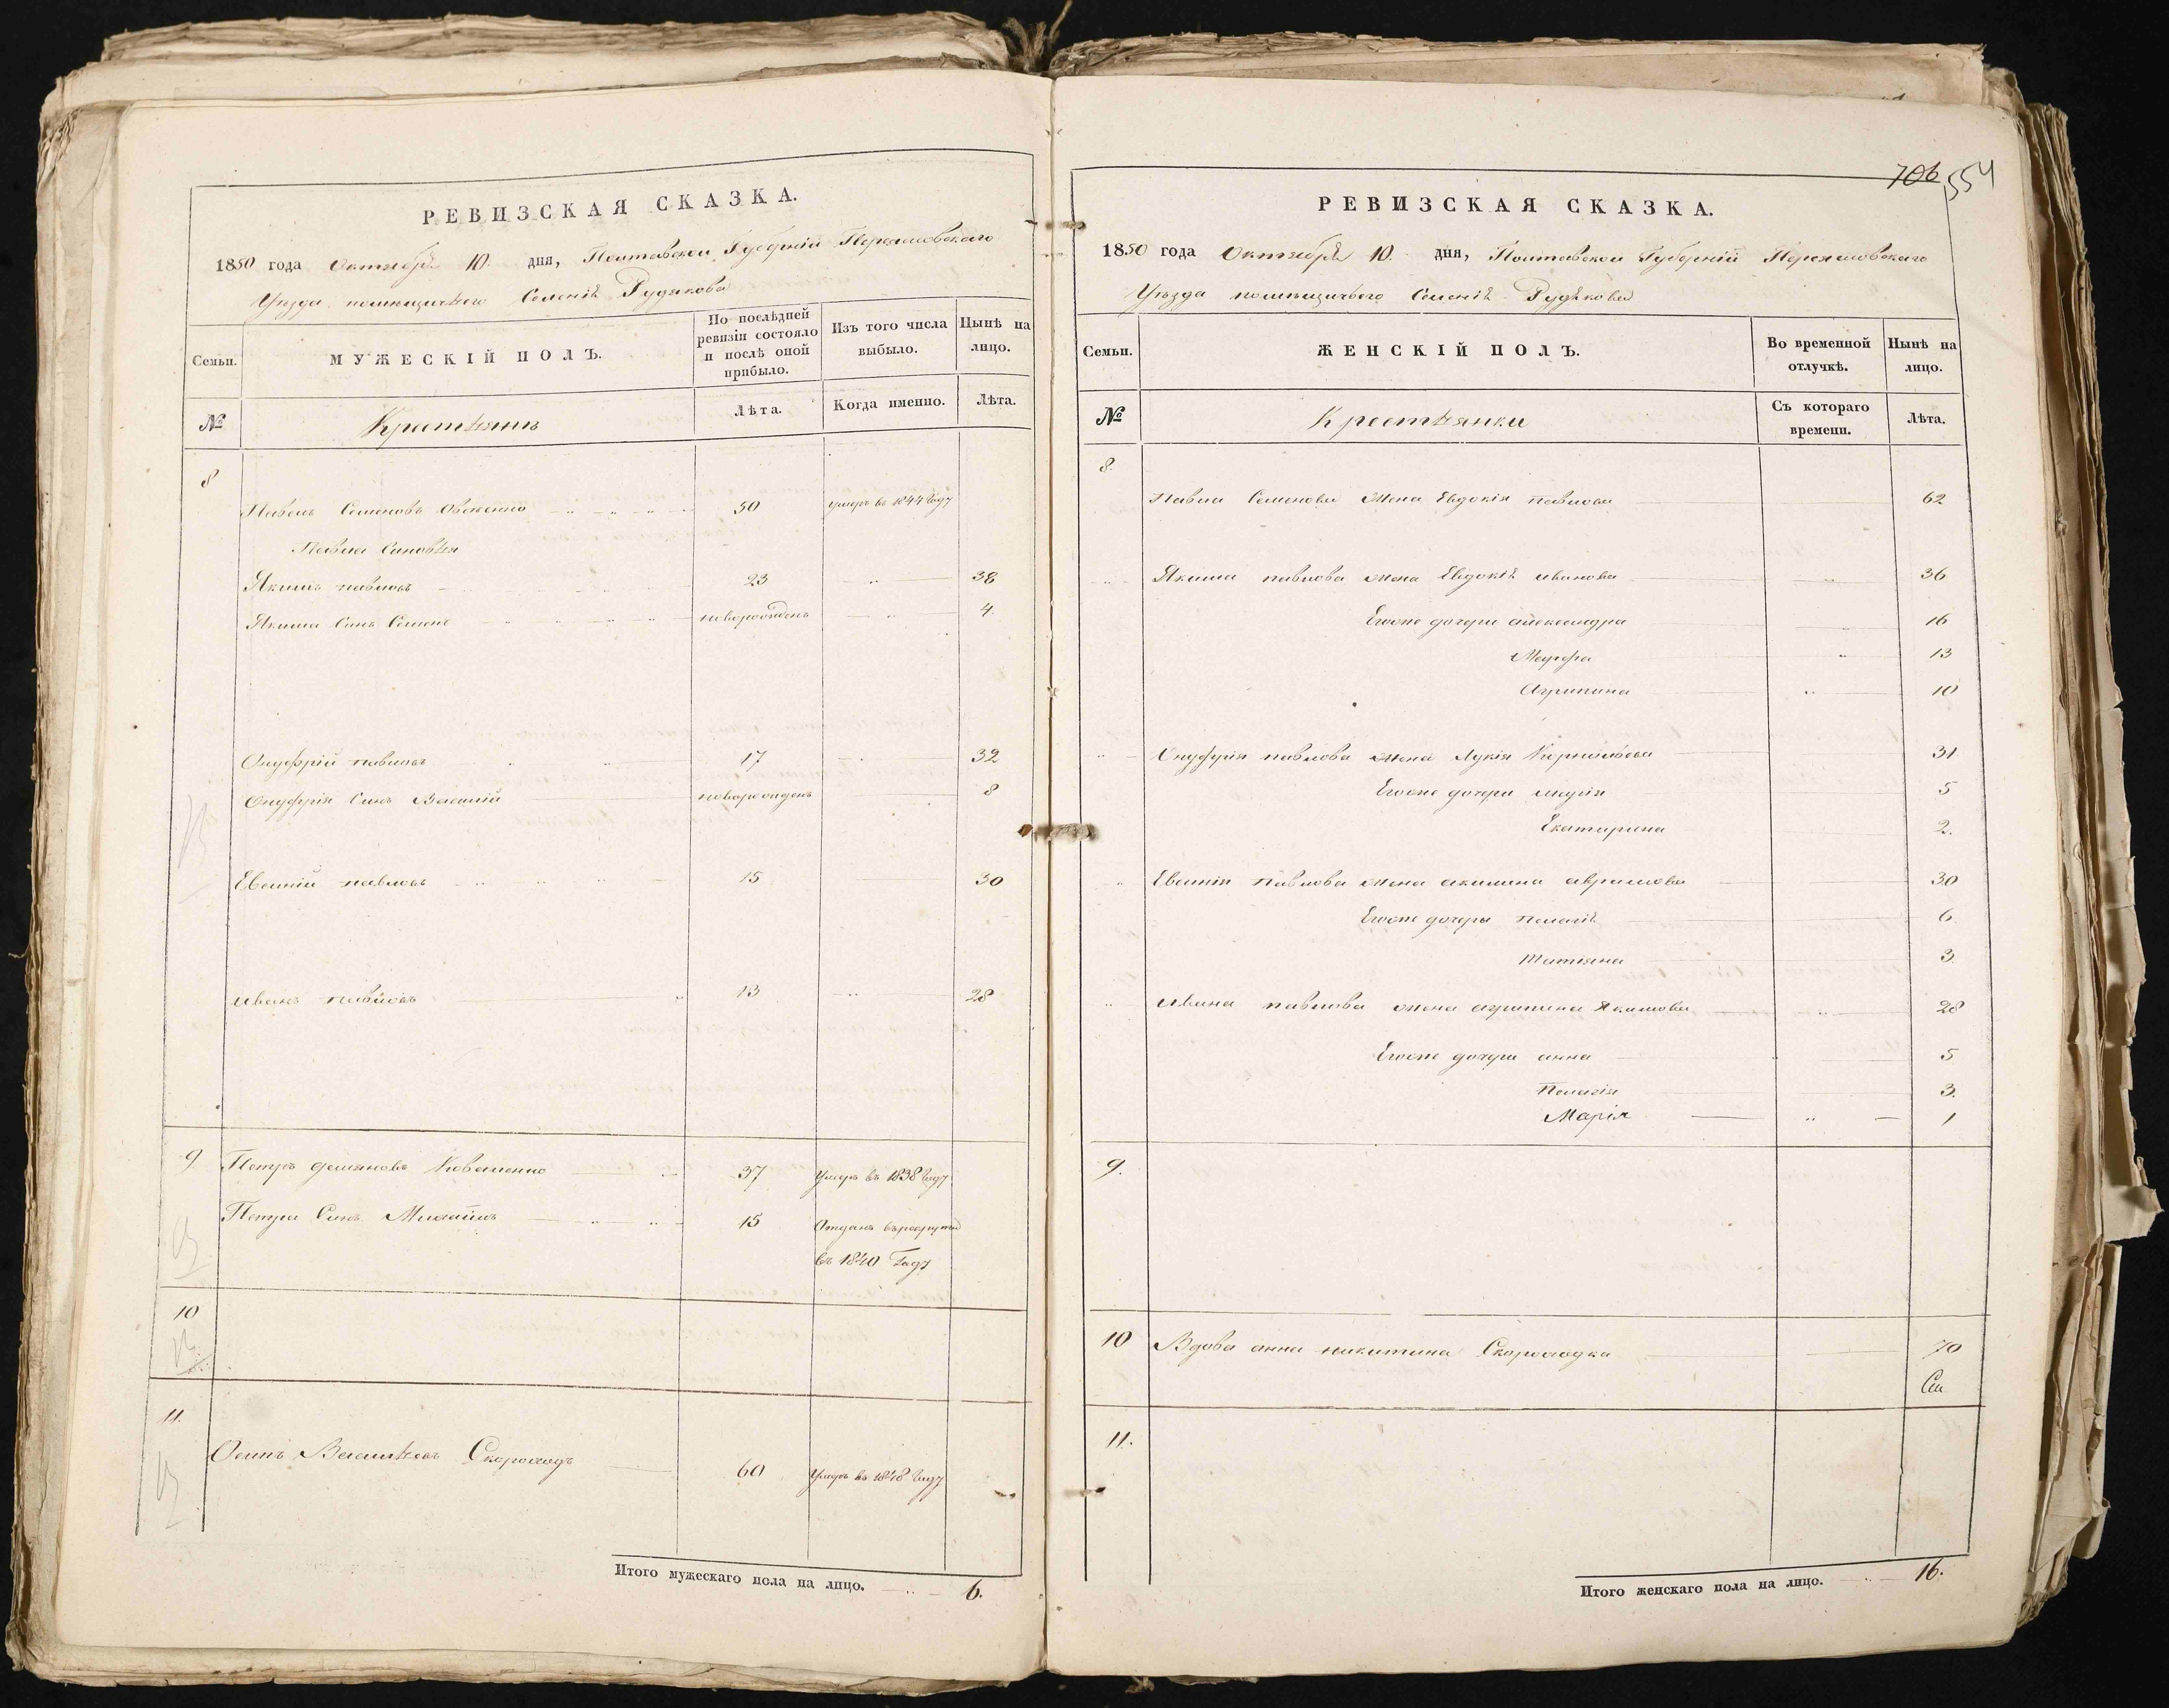 РЕВИЗСКАЯ СКАЗКА.
1850 года Октября 10. дня, Полтавской Губерніи Переясловского
Уезда помещичього Селенія Рудякова
Семьи. МУЖЕСКІЙ ПОЛЪ. По послѣдней ревизіи состояло и послѣ оной прибыло. Изъ того числа выбыло. Нынѣ на лицо.
№ Крестьянъ Лѣта. Когда именно. Лѣта.
8
Павелъ Семеновъ 50 умеръ въ 1844 Году
Павла Синовья
Якимъ павловъ 23 38
Якима Синъ Семенъ новорожденъ 4.
Онуфрій павловъ 17 32
Онуфрія Синъ Василій новорожденъ 8
Евстій павловъ 15 30
иванъ павловъ 13 28
9 Петръ демяновъ Коваленко 37 Умеръ въ 1838 Году
Петра Синъ Михайлъ 15 Отданъ въ рекруты
въ 1840 Году
10
11.
Осипъ Васильевъ Скороходъ 60 Умеръ въ 1848 Году
Итого мужескаго пола на лицо. 6.
706 554
РЕВИЗСКАЯ СКАЗКА.
1850 года Октября 10. дня, Полтавской Губерніи Переясловского
Уезда помещичьего Селенія Рудякова
Семьи. ЖЕНСКІЙ ПОЛЪ. Во временной отлучкѣ. Нынѣ на лицо.
№ Крестьянки Съ котораго времени. Лѣта.
8.
Павла Семенова жена Евдокія павлова 62
Якима павлова жена Евдокія иванова 36
Егоже дочери александра 16
Марфа 13
Агрипина 10
Онуфрія павлова жена Лукія Корнильева 31
Егоже дочери марія 5
Екатирина 2.
Евстія павлова жена акилина аврамова 30
Егоже дочеры пелагія 6.
татіяна 3.
ивана павлова жена агрипина Якимова 28
Егоже дочери анна 5
Пелагія 3.
Марія 1
9.
10 Вдова анна никитина Скороходка 70
11.
Итого женскаго пола на лицо. 16.